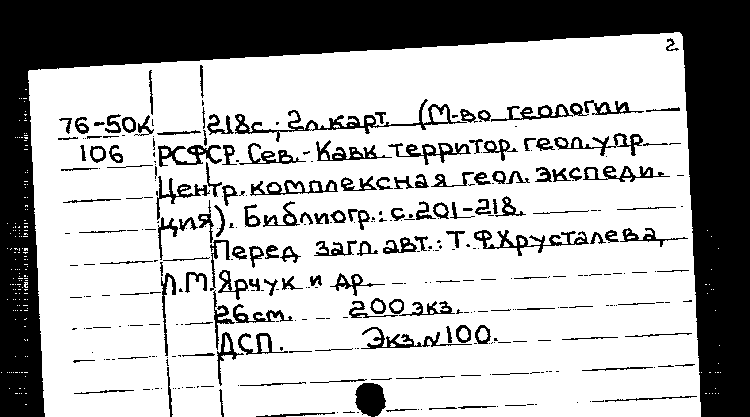 2.
76-50к 218с; 2л.карт. (М-во геологии
106 РСФСР. Сев.-Кавк.территор.геол.упр.
Центр.комплексная геол.экспеди-
ция). Библиогр.: с.201-218.
Перед загл.авт.: Т.Ф.Хрусталева,
Л.М.Ярчук и др.
26см. 200экз.
ДСП. Экз.№100.